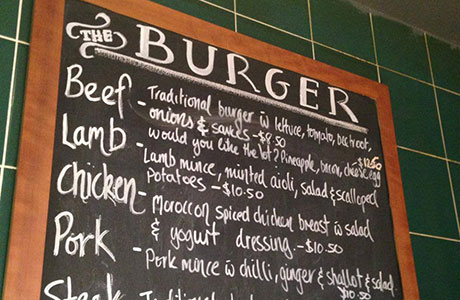 THE BURGER
Beef - Traditional burger w lettuce, tomato, beetroot,
onions & sauces - $8.50
would you like the lot? Pineapple, bacon, cheese, egg - $12.50
Lamb - Lamb mince, minted aioli, salad & scalloped
potatoes - $10.50
Chicken - Moroccan spiced chicken breast w salad
& yogurt dressing - $10.50
Pork - Pork mince w chilli, ginger & shallot & salad
$10.50
Steak - Traditional